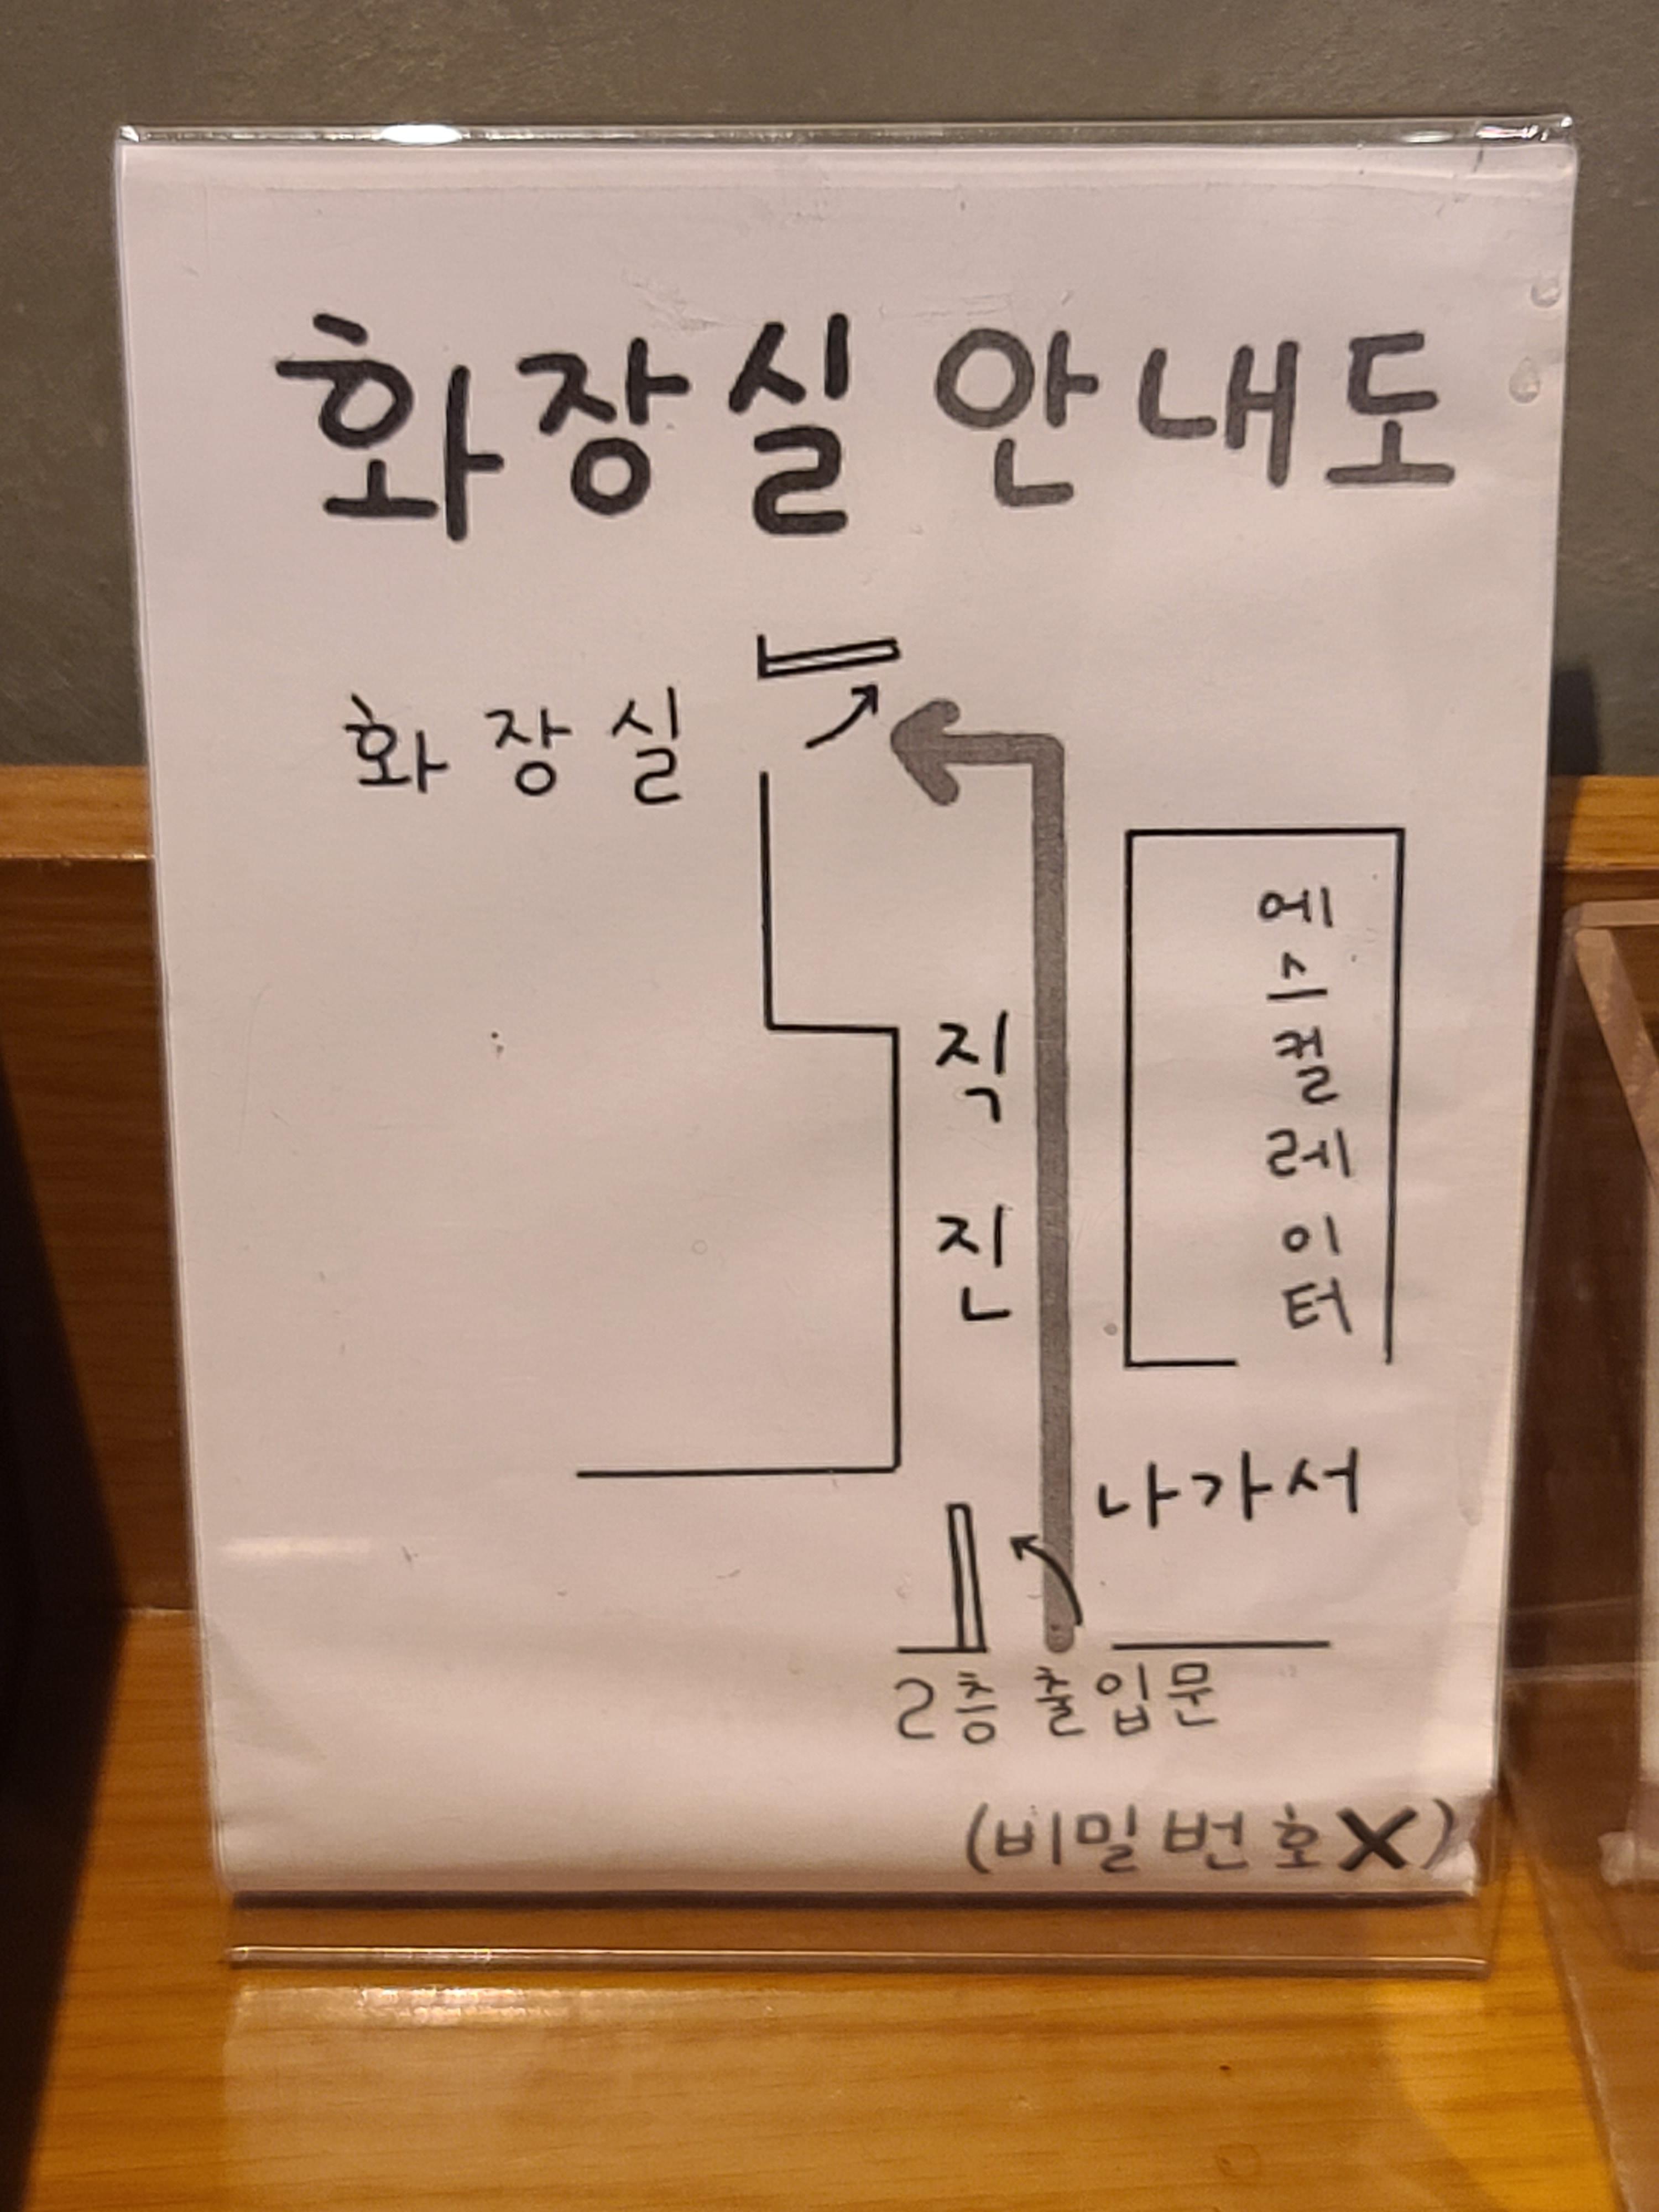 화장실 안내도
화장실
에스컬레이터
직진
나가서
2층 출입문
(비밀번호X)